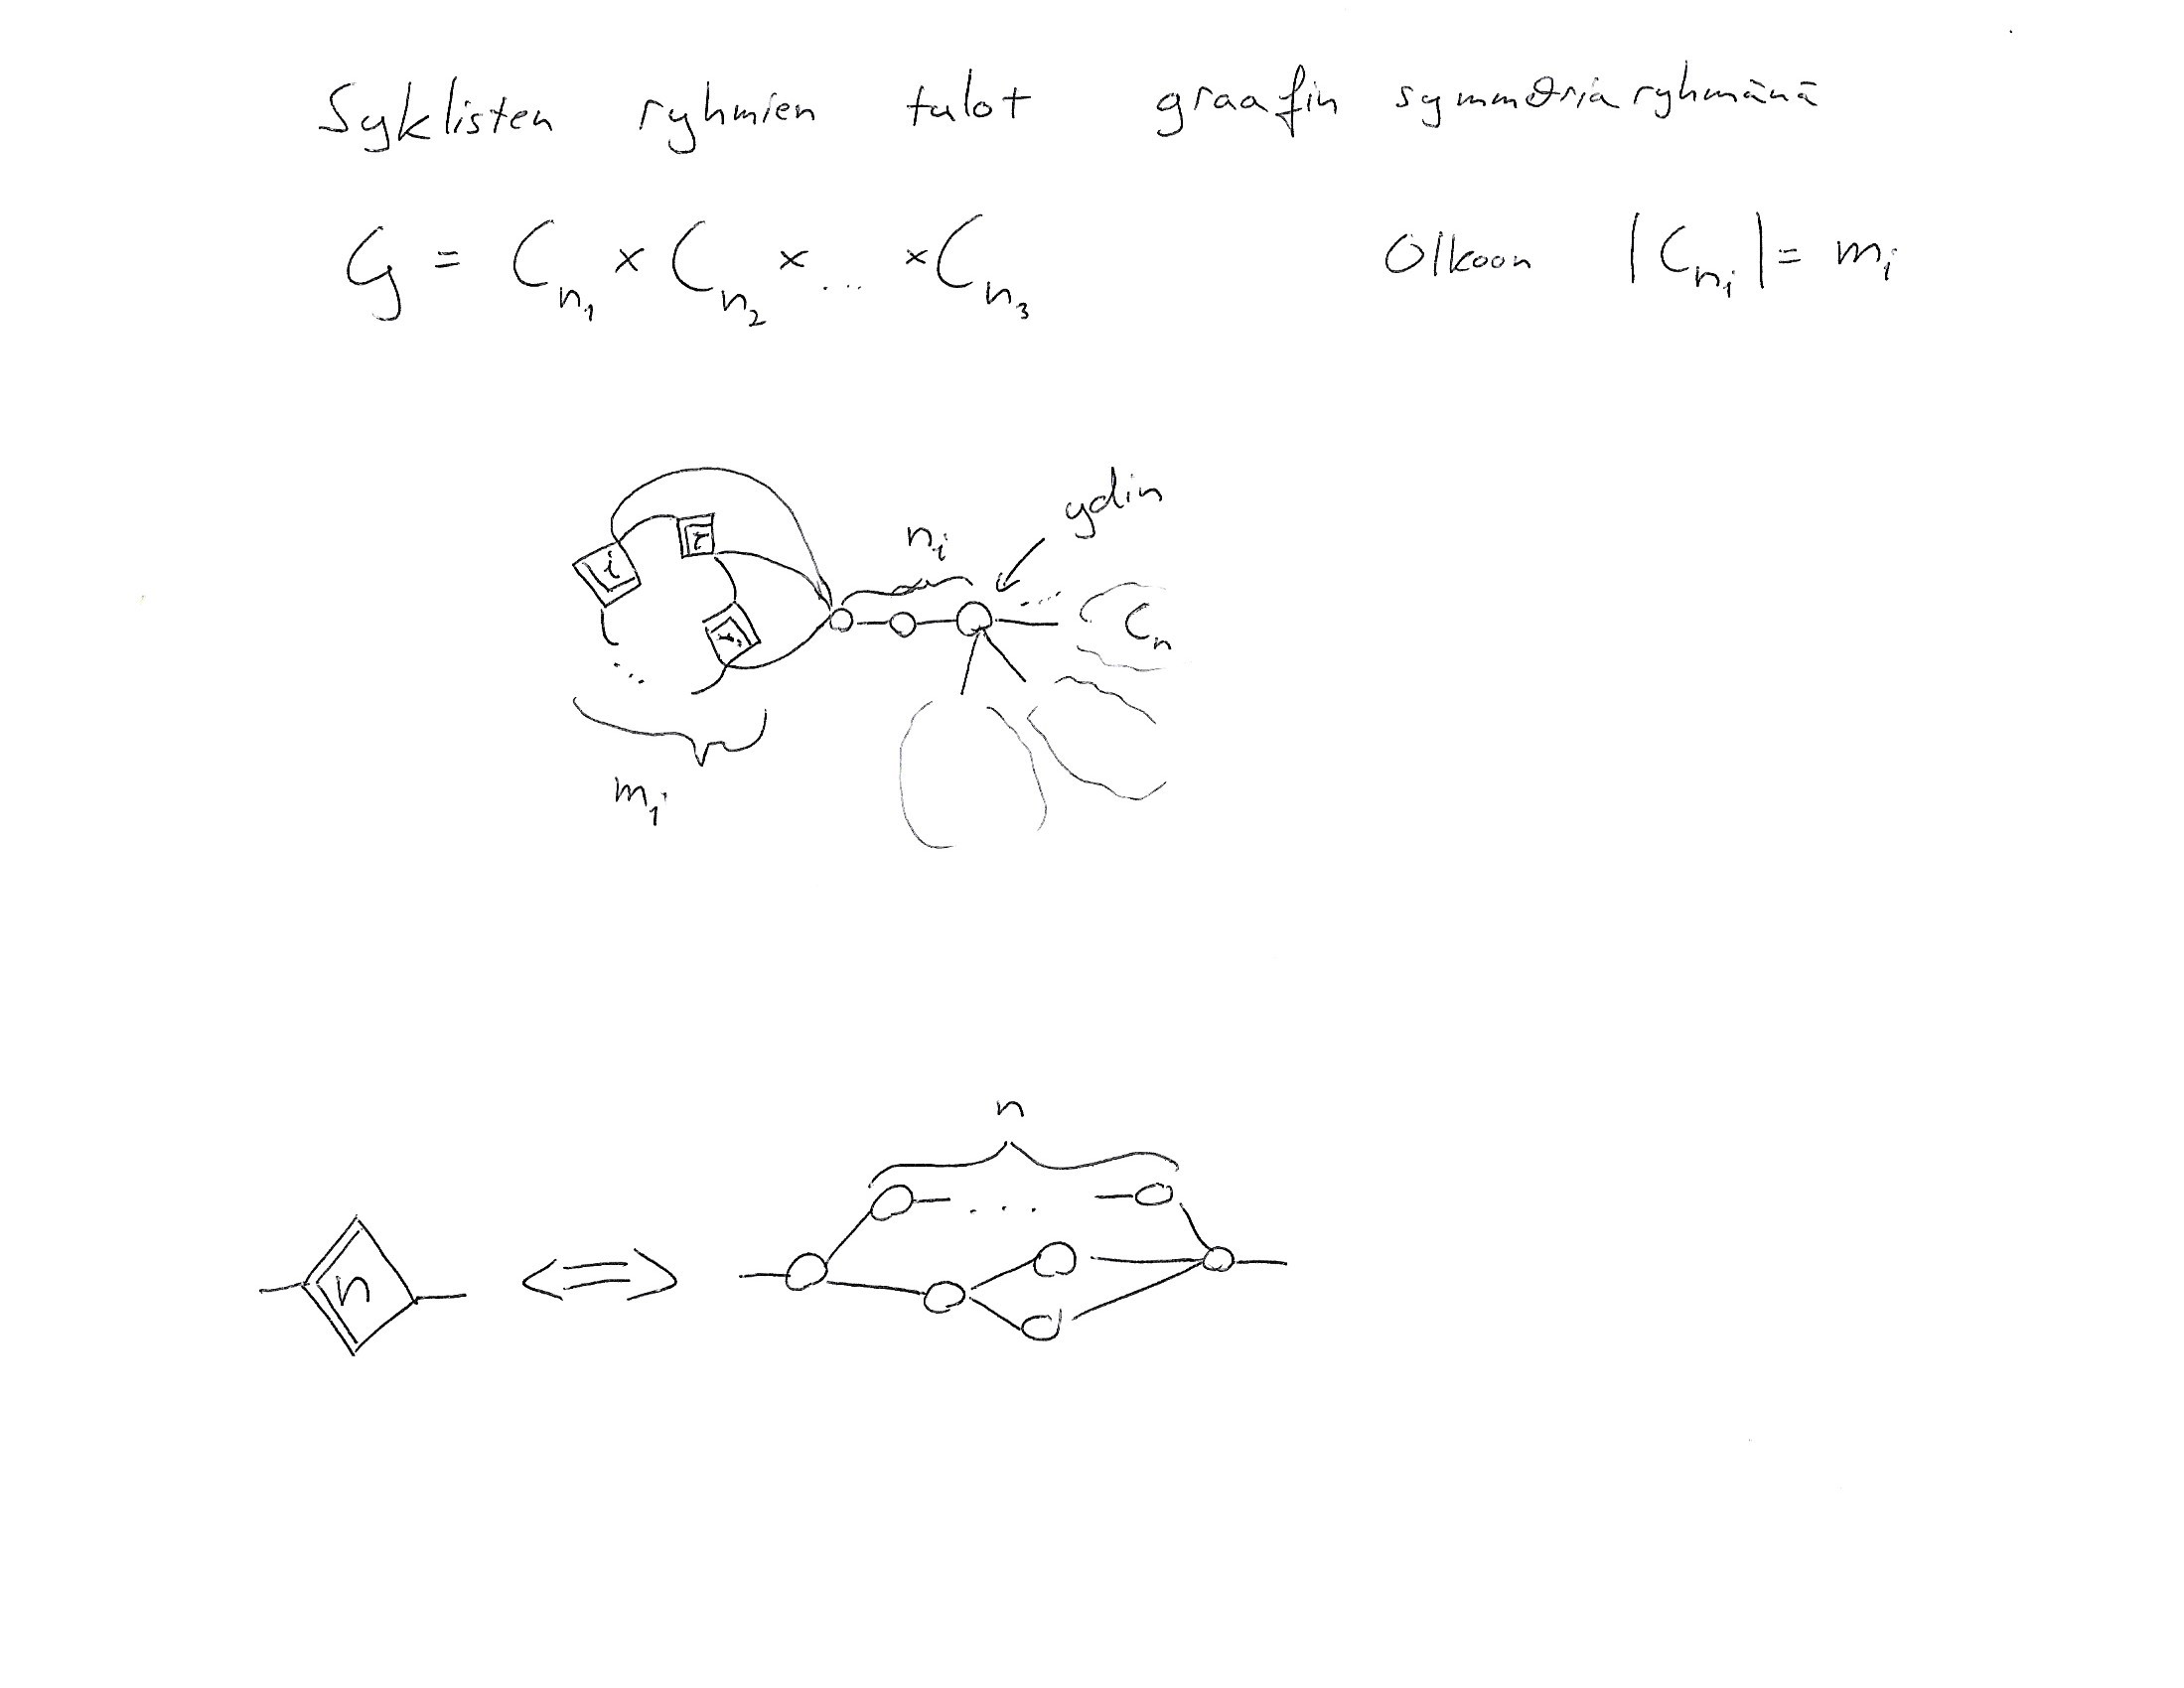 Syklisten ryhmien tulot graafin symmetriaryhmänä
G = C_{n_1} × C_{n_2} × ... × C_{n_3} Olkoon |C_{n_i}| = m_i
ydin
n_i
i
i
i
...
C_n
m_i
n
...
n ⇔